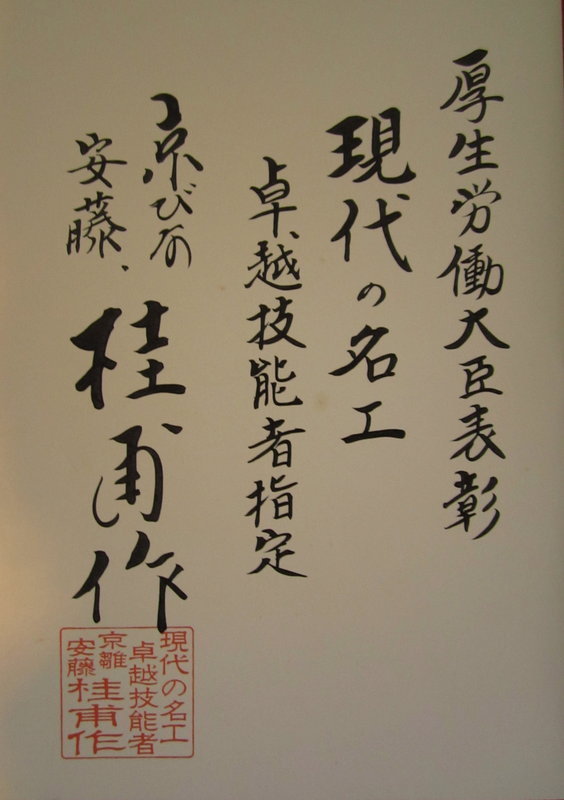 厚生労働大臣表彰
現代の名工
卓越技能者指定
京びな
安藤
桂甫作
現代の名工
卓越技能者
京雛
安藤
桂甫作